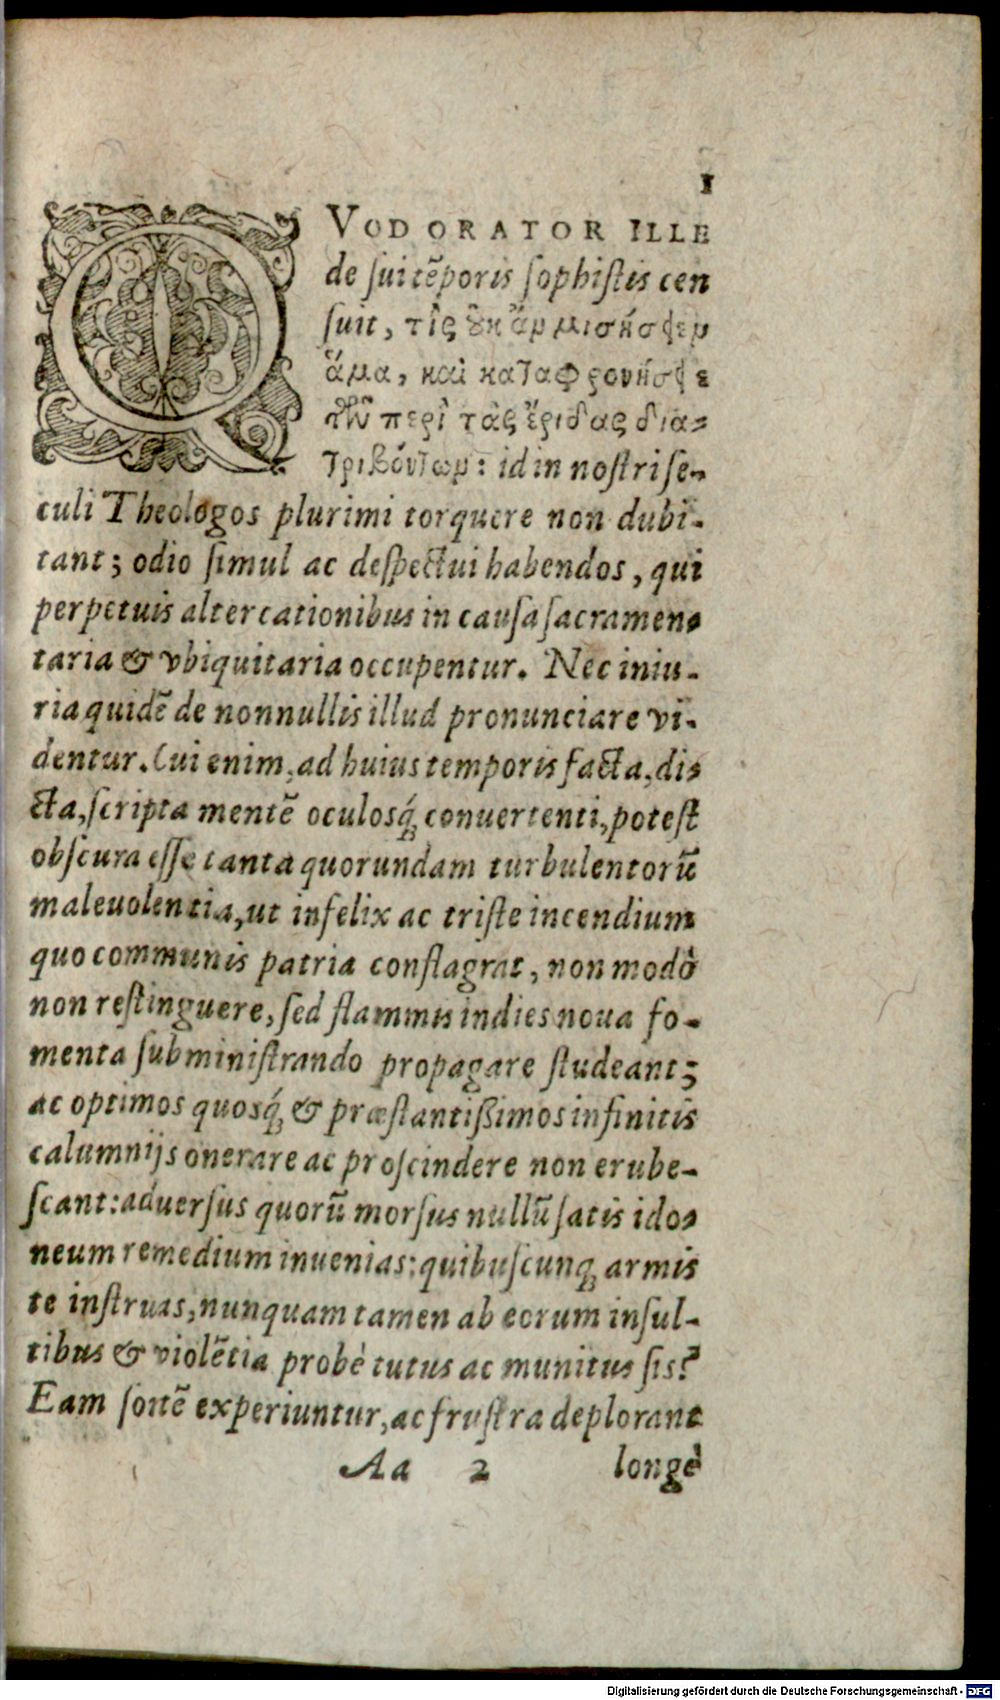 1
QVOD ORATOR ILLE
de sui tẽporis sophistis cen
suit, τίς ȣκ ἂν μισήσειεν
ἅμα, καὶ καταφρονήσειε
τῶν περὶ τὰς ἔριδας δια-
τριβόντων: id in nostri se-
culi Theologos plurimi torquere non dubi-
tant; odio simul ac despectui habendos, qui
perpetuis altercationibus in causa sacramen-
taria & vbiquitaria occupentur. Nec iniu-
ria quidẽ de nonnullis illud pronunciare vi-
dentur. Cui enim, ad huius temporis facta, di-
cta, scripta mentẽ oculosq́; conuertenti, potest
obscura esse tanta quorundam turbulentorũ
maleuolentia, ut infelix ac triste incendium
quo communis patria conflagrat, non modò
non restinguere, sed flammis indies noua fo-
menta subministrando propagare studeant;
ac optimos quosq́; & præstantißimos infinitis
calumnijs onerare ac proscindere non erube-
scant: aduersus quorũ morsus nullũ satis ido-
neum remedium inuenias: quibuscunq; armis
te instruas, nunquam tamen ab eorum insul-
tibus & violẽtia probè tutus ac munitus sis?
Eam sortẽ experiuntur, ac frustra deplorant
Aa 2 longè
Digitalisierung gefördert durch die Deutsche Forschungsgemeinschaft - DFG